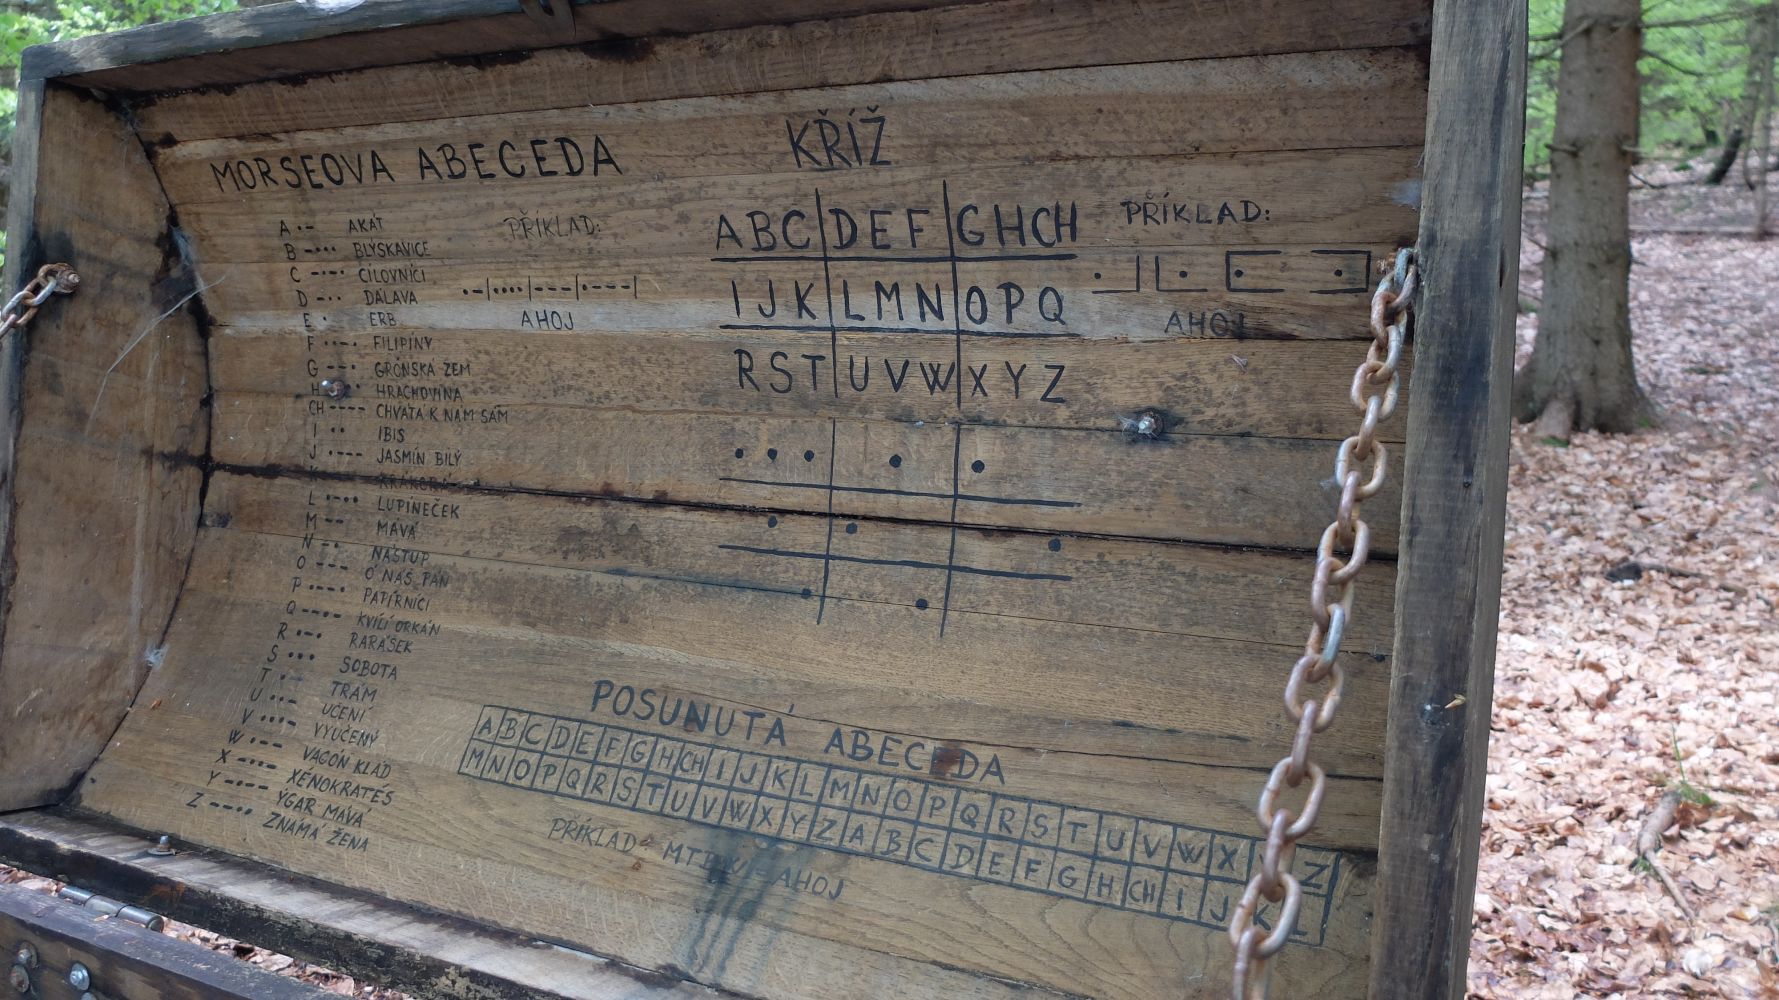 MORSEOVA ABECEDA
A ·– AKÁT
B –··· BLÝSKAVICE
C –·–· CÍLOVNÍCI
D –·· DÁLAVA
E · ERB
F ··–· FILIPÍNY
G ––· GRÓNSKÁ ZEM
H HRACHOVINA
CH –––– CHVÁTÁ K NÁM SÁM
I ·· IBIS
J ·––– JASMÍN BÍLÝ
K KRÁKORÁ
L ·–·· LUPÍNEČEK
M –– MÁVÁ
N –· NÁSTUP
O ––– Ó NÁŠ PÁN
P ·––· PAPÍRNÍCI
Q ––·– KVÍLÍ ORKÁN
R ·–· RARÁŠEK
S ··· SOBOTA
T – TRÁM
U ··– UČENÍ
V ···– VYUČENÝ
W ·–– VAGÓN KLAD
X –··– XÉNOKRATÉS
Y –·–– ÝGAR MÁVÁ
Z ––·· ZNÁMÁ ŽENA
PŘÍKLAD:
·–|····|–––|·–––|
AHOJ
KŘÍŽ
ABC DEF GHCH
IJK LMN OPQ
RST UVW XYZ
PŘÍKLAD:
AHOJ
POSUNUTÁ ABECEDA
A B C D E F G H CH I J K L M N O P Q R S T U V W X Y Z
M N O P Q R S T U V W X Y Z A B C D E F G H CH I J K L
PŘÍKLAD: = AHOJ